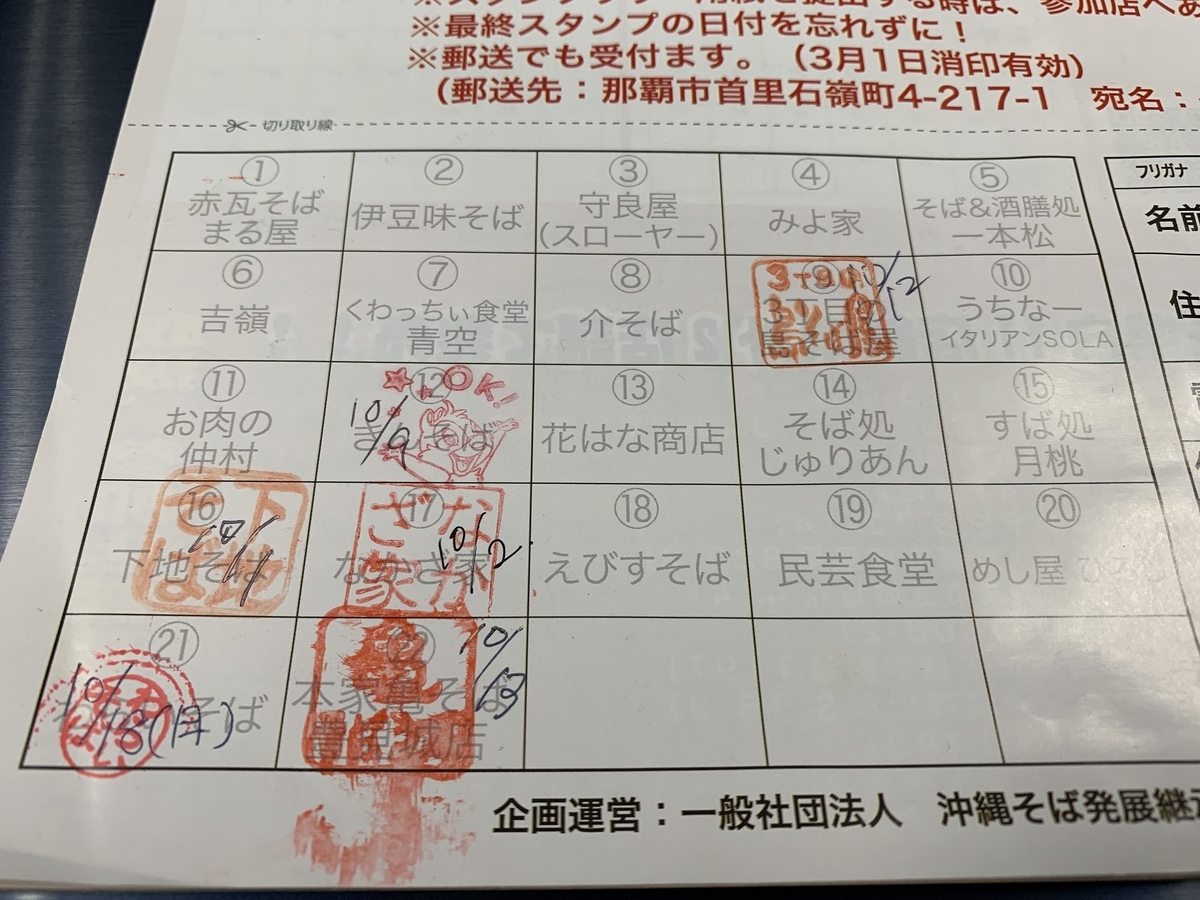 ※最終スタンプの日付を忘れずに！
※郵送でも受付ます。（3月1日消印有効）
（郵送先：那覇市首里石嶺町4-217-1　宛名：
切り取り線
①
赤瓦そば
まる屋
②
伊豆味そば
③
守良屋
(スローヤー)
④
みよ家
⑤
そば&酒膳処
一本松
フリガナ
名前
⑥
吉嶺
⑦
くわっちぃ食堂
青空
⑧
介そば
⑨
3丁目の
島そば屋
10/12
⑩
うちなー
イタリアンSOLA
住
⑪
お肉の
仲村
⑫
OK!
10/9
⑬
花はな商店
⑭
そば処
じゅりあん
⑮
すば処
月桃
⑯
下地そば
10/11
⑰
なかざ家
10/2
⑱
えびすそば
⑲
民芸食堂
⑳
めし屋
㉑
そば
10/18(月)
㉒
本家亀そば
豊見城店
10/13
企画運営：一般社団法人　沖縄そば発展継承